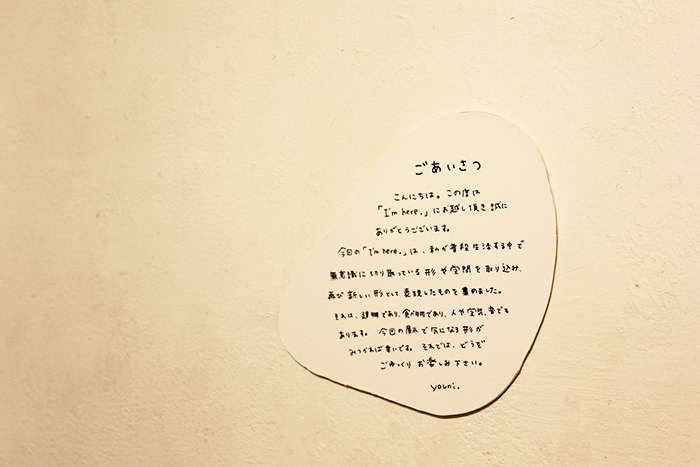 ごあいさつ
こんにちは。この度は
「I'm here.」にお越し頂き誠に
ありがとうございます。
今回の「I'm here.」は、私が普段生活する中で
無意識に切り取っている形や空間を取り込み、
再び新しい形として表現したものを集めました。
それは、建物であり、食べ物であり、人や空気、音でも
あります。今回の展示で気になる形が
みつかれば幸いです。それでは、どうぞ
ごゆっくりお楽しみ下さい。
youni.